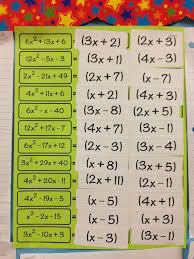 6x² + 13x + 6 = (3x + 2) (2x + 3)
12x² - 5x - 3 = (3x + 1) (4x - 3)
2x² - 21x + 49 = (2x - 7) (x - 7)
4x² + 11x + 6 = (x + 2) (4x + 3)
6x² - x - 40 = (3x - 8) (2x + 5)
12x² + 17x - 7 = (4x + 7) (3x - 1)
6x² - 17x + 12 = (3x - 4) (2x - 3)
3x² + 29x + 40 = (x + 8) (3x + 5)
4x² + 20x - 11 = (2x + 11) (2x - 1)
x² - 2x - 15 = (x - 5) (x + 3)
3x² - 10x + 3 = (x - 3) (3x - 1)